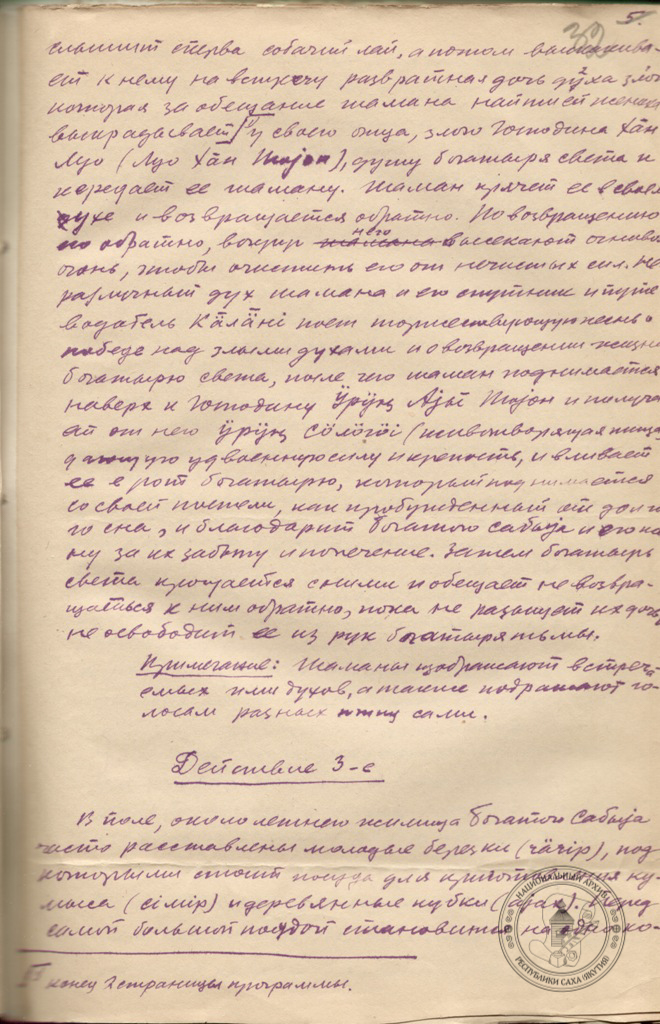 5.
32
слышит сперва собачий лай, а потом выскакива-
ет к нему на встречу развратная дочь духа зла
которая за обещание шамана найти ей жениха
выкрадывает у своего отца, злого Господина Хан
Луо (Луо Хан Тоjон), душу богатыря света и
передает ее шаману. Шаман прячет ее в своем
ухе и возвращается обратно. По возвращению
его обратно, вокруг него высекают огнивом
огонь, чтобы очистить его от нечистых сил. Не
разлучный дух шамана и его спутник и путе
водатель Кӓлӓнi поет торжествующую песнь о
победе над злыми духами и о возвращении жизни
богатырю света, после чего шаман поднимается
наверх к Господину Ӱрӱҥ Аjы Тоjон и получа
ет от него Ӱрӱҥ Сӧлӧгӧi (животворящая пища
дающую удвоенную силу и крепость, и вливает
ее в рот богатырю, который поднимается
со своей постели, как пробужденный от долг
го сна, и благодарит богатого Сабыjа и его жи
ну за их заботу и попечение. Затем богатырь
света прощается с ними и обещает не возвра-
щаться к ним обратно, пока не разыщет их дочь
не освободит ее из рук богатыря тьмы.
Примечание: Шаманы изображают встреч
емых ими духов, а также подражают го-
лосам разных птиц сами.
Действие 3-е
В поле, около летнего жилища богатого Сабыjа
часто расставлены молодые березки (чӓчiр), под
которыми стоит посуда для приготовления ку-
мыса (сiмiр) и деревянные кубки (аjах). Перед
самой большой посудой становится на одно ко-
конец 2 страницы программы.
НАЦИОНАЛЬНЫЙ АРХИВ
РЕСПУБЛИКИ САХА (ЯКУТИЯ)